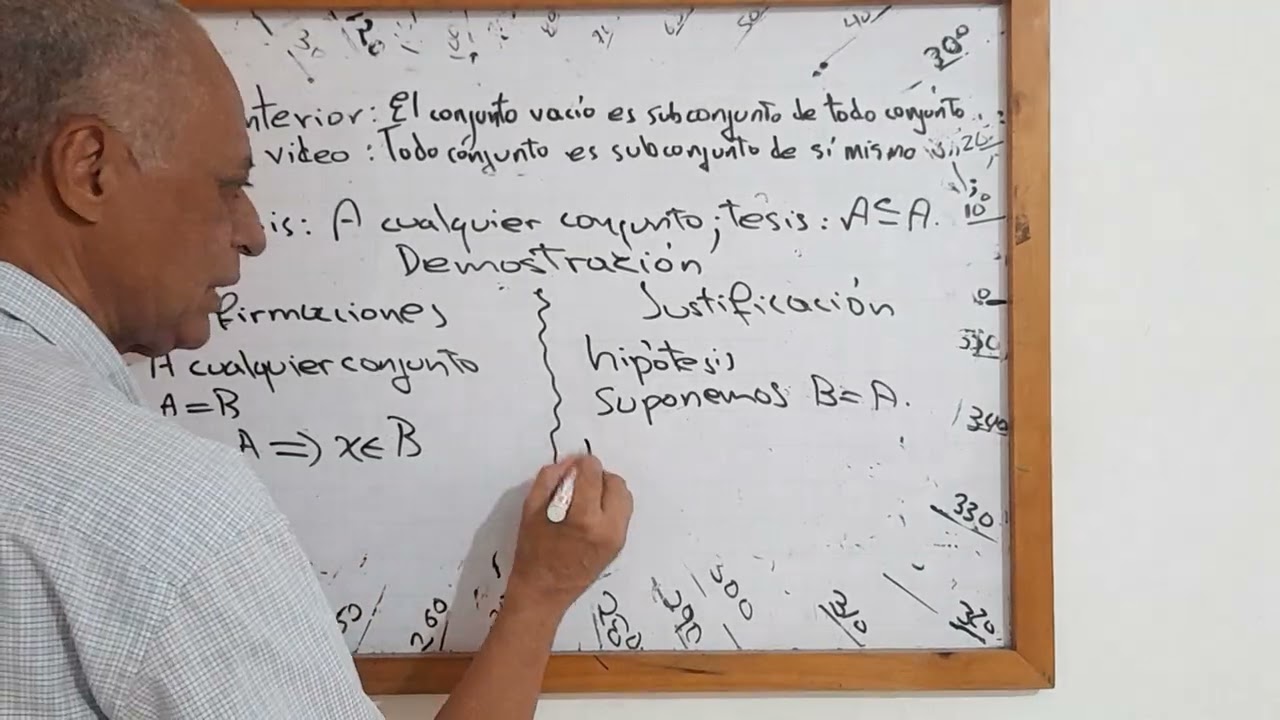 30 20 80 70 60 50 40 300
nterior: El conjunto vacío es subconjunto de todo conjunto.
video: Todo conjunto es subconjunto de sí mismo 20
is: A cualquier conjunto; tesis: A⊆A. 10°
Demostración
firmaciones Justificación 0
A cualquier conjunto hipótesis 350
A=B Suponemos B=A.
A ⇒ x∈B 340
330
50 260 290 300 310 320